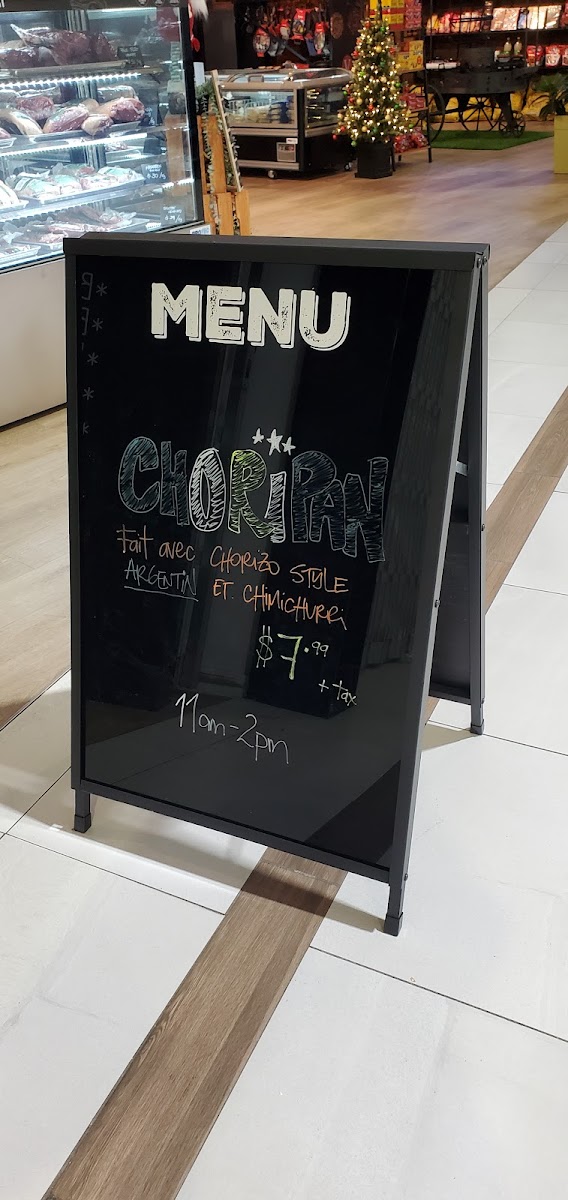 MENU
CHORIPAN
Fait avec CHORIZO STYLE
ARGENTIN ET CHIMICHURRI
$7.99
+ tax
11am-2pm